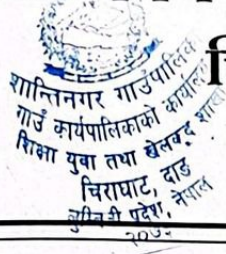 शान्तिनगर गाउँपालिका
गाउँ कार्यपालिकाको कार्यालय
शिक्षा युवा तथा खेलकुद शाखा
चिराघाट, दाङ
लुम्बिनी प्रदेश, नेपाल